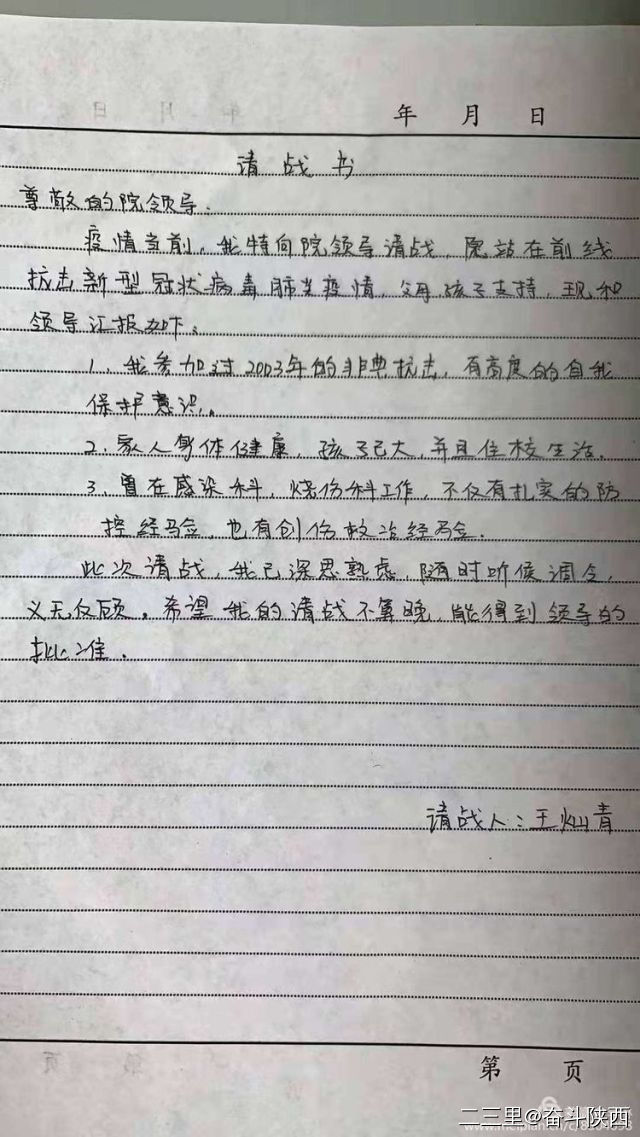 年 月 日
请战书
尊敬的院领导.
疫情当前,我特向院领导请战,愿站在前线
抗击新型冠状病毒肺炎疫情,父母孩子支持,现和
领导汇报如下。
1、我参加过2003年的非典抗击,有高度的自我
保护意识。
2、家人身体健康,孩子已大,并且住校生活.
3、曾在感染科,烧伤科工作,不仅有扎实的防
控经验,也有创伤救治经验.
此次请战,我已深思熟虑,随时听侯调令,
义无反顾。希望我的请战不算晚,能得到领导的
批准.
请战人:王灿青
第 页
二三里@奋斗陕西